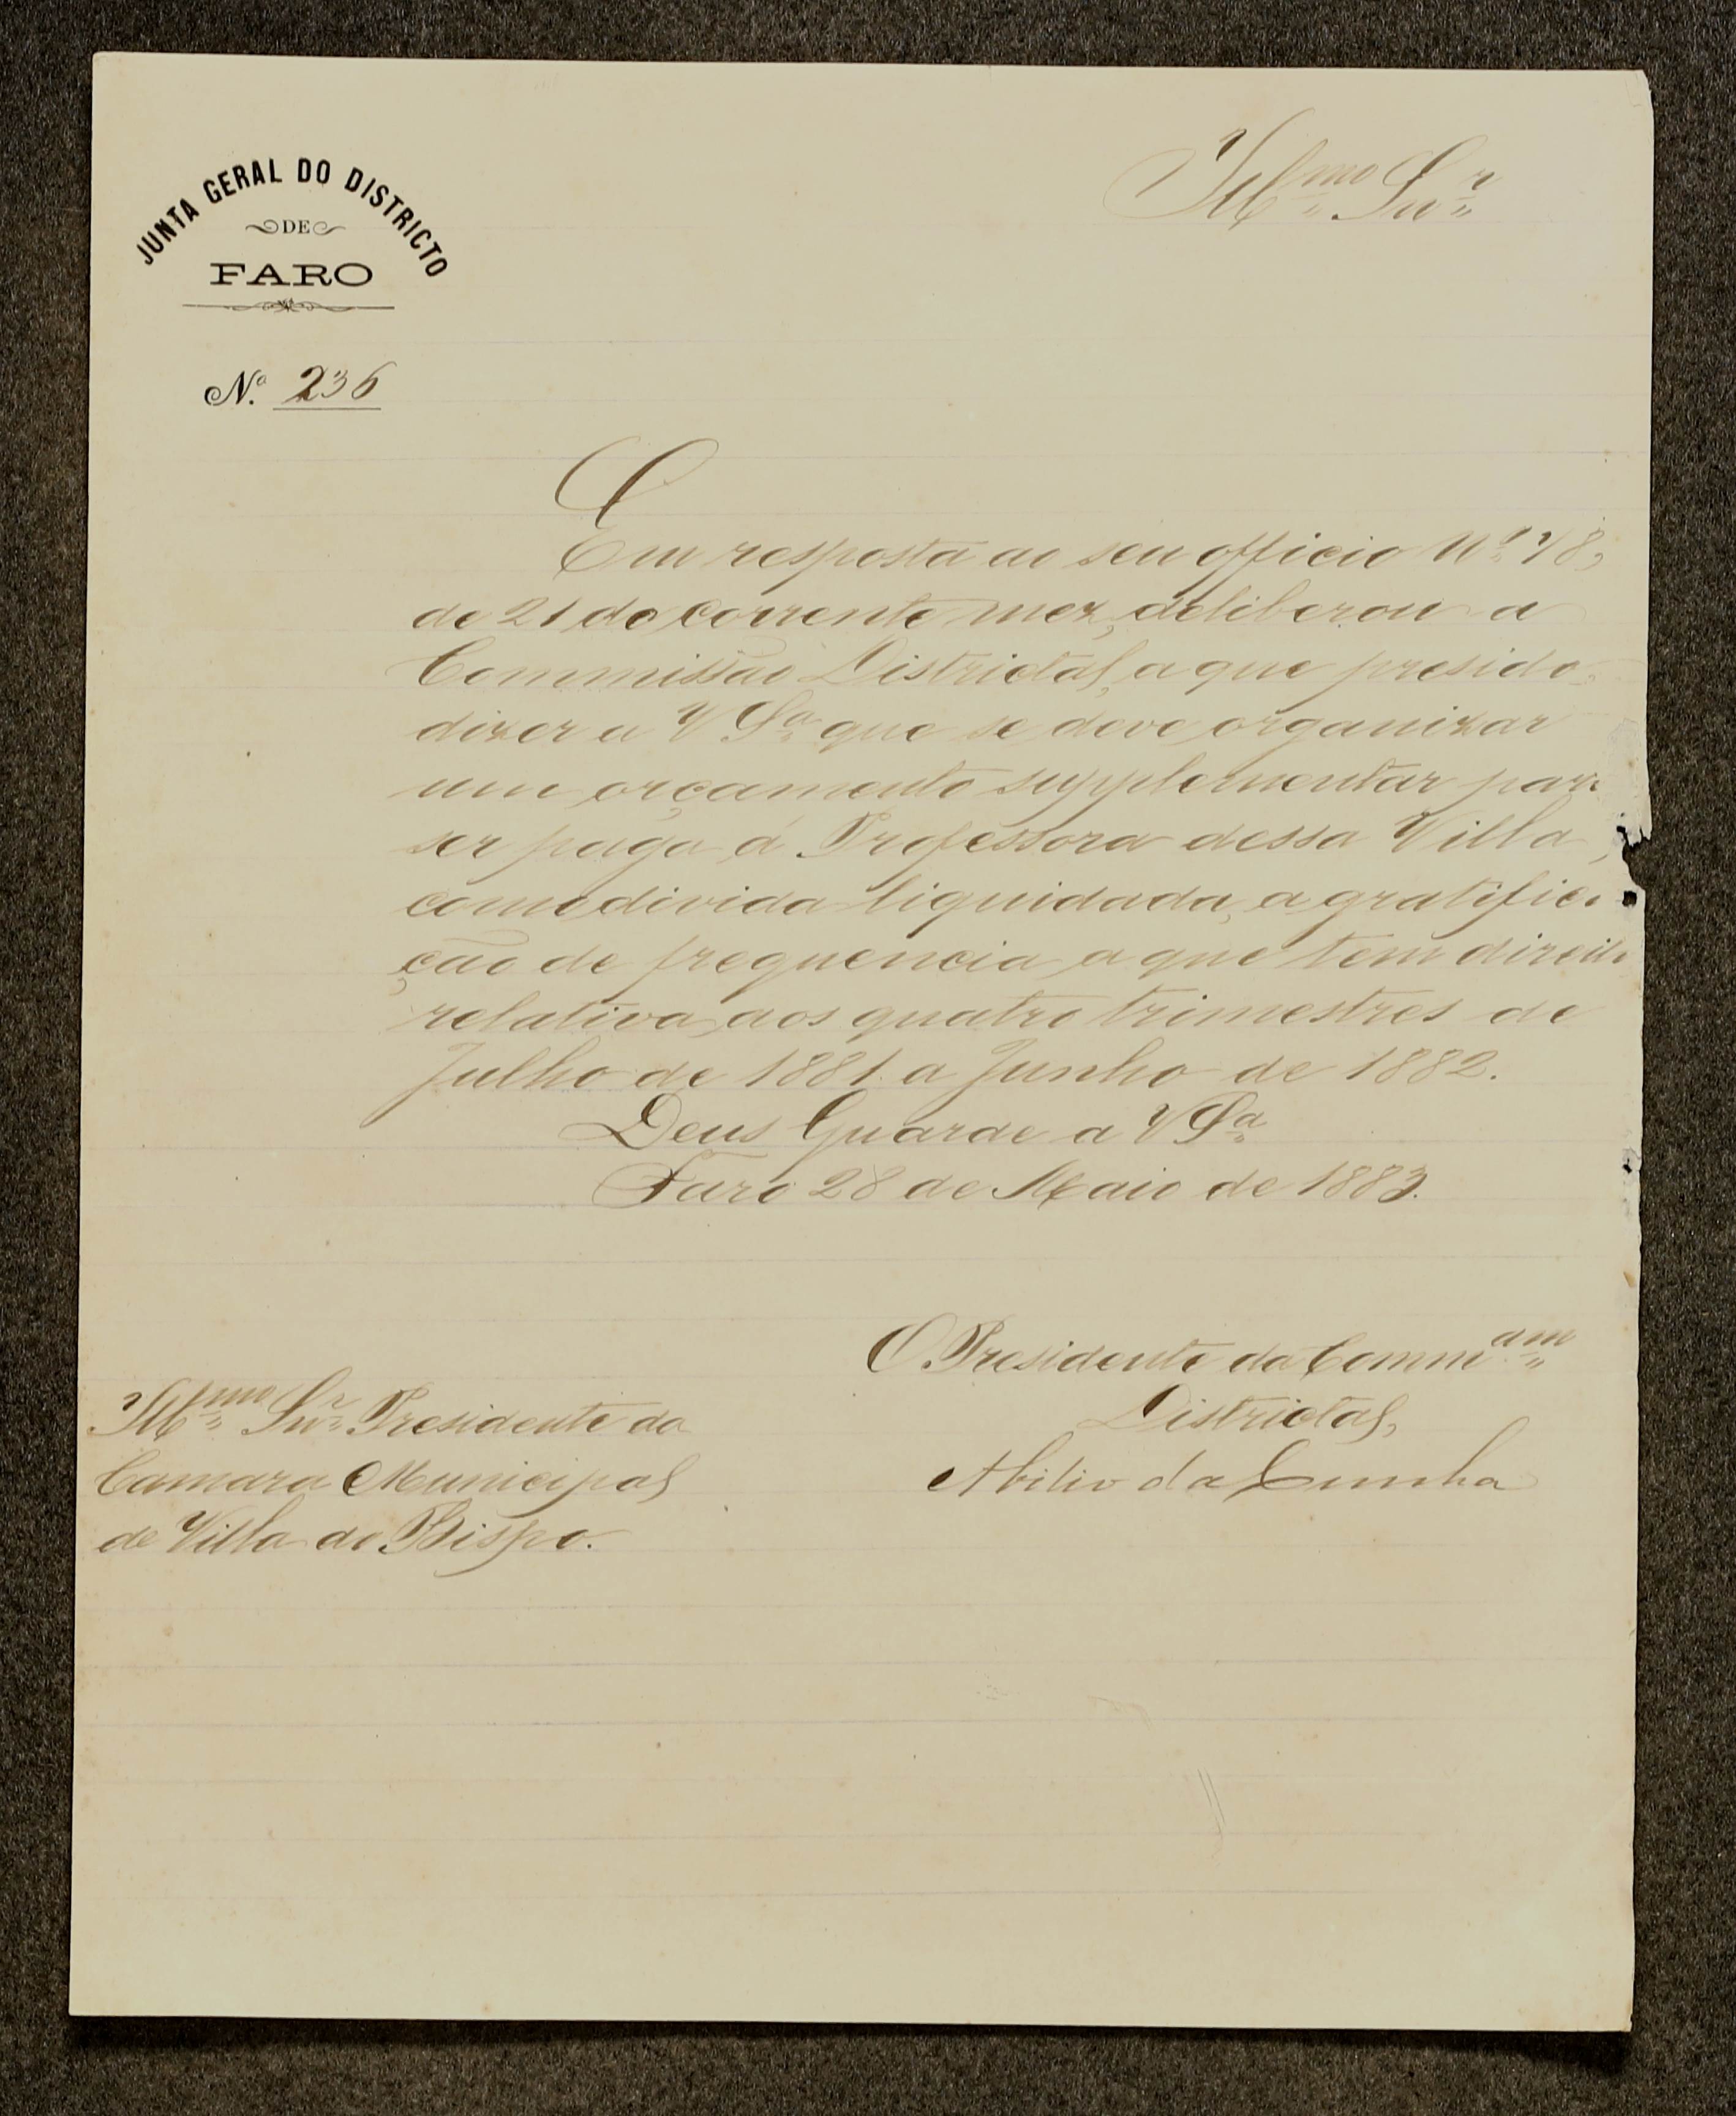 JUNTA GERAL DO DISTRICTO
DE
FARO
Nº 236
Illmo Snr
Em resposta ao seu officio nº 78,
de 21 do corrente mez, deliberou a
Commissão Districtal, a que presido,
dizer a V Sa que se deve organizar
um orçamento supplementar para
ser paga á Professora dessa Villa,
como divida liquidada, a gratifica
ção de frequencia a que tem direito
relativa aos quatro trimestres de
Julho de 1881 a Junho de 1882.
Deus Guarde a V Sa
Faro 28 de Maio de 1883.
O Presidente da Commam
Districtal,
Abilio da Cunha
Illmo Snr Presidente da
Camara Municipal
de Villa do Bispo.